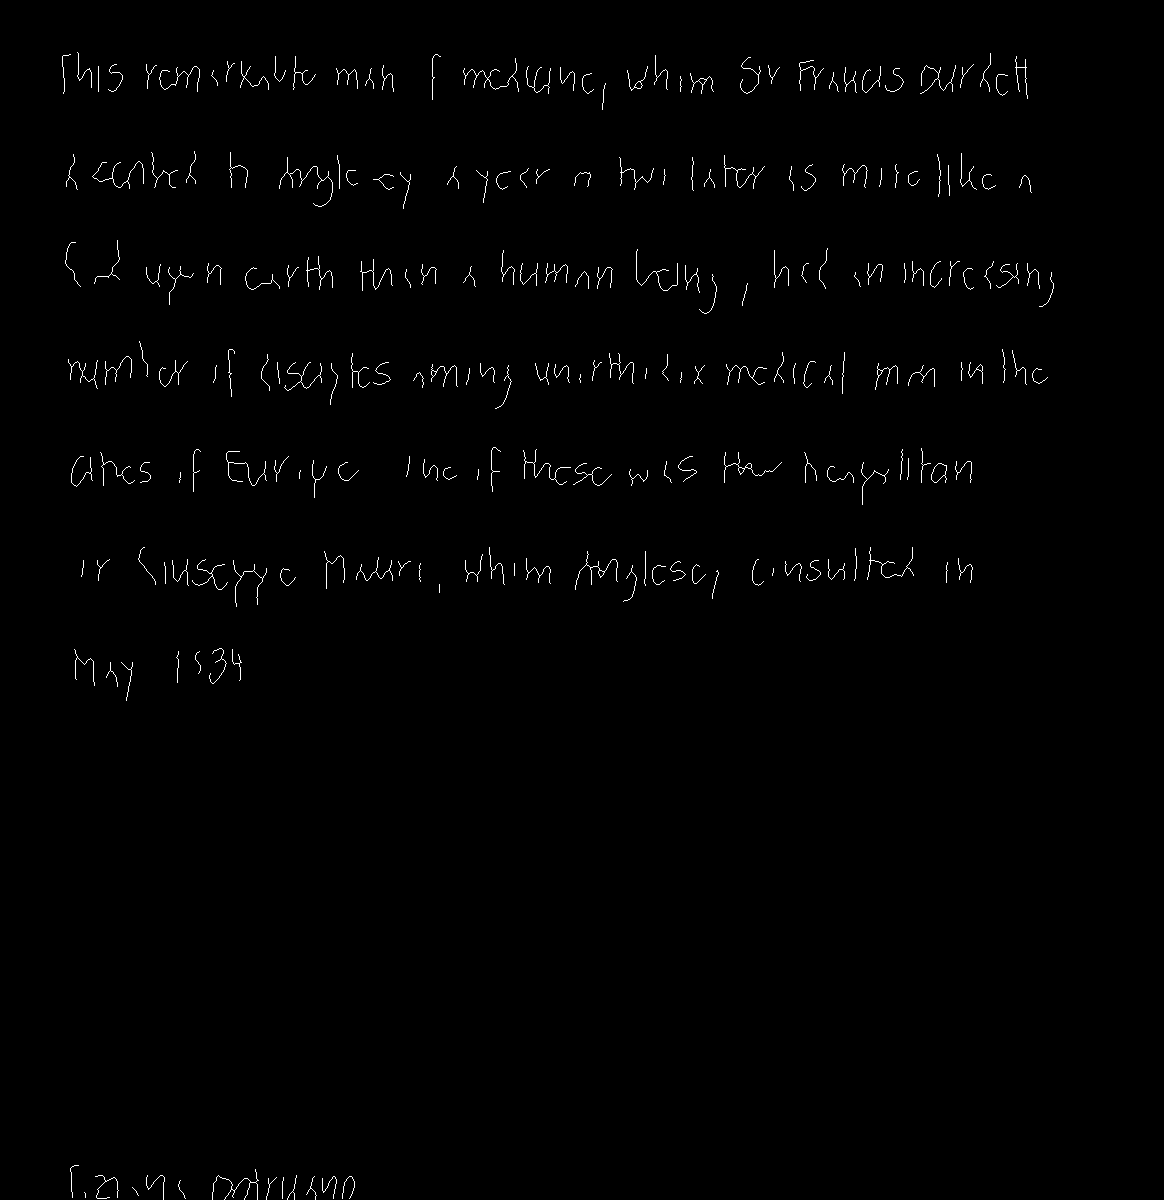 This remarkable man of medicine, whom Sir Francis Burdett
described to Anglesey a year or two later as more like a
God upon earth than a human being, had an increasing
number of disciples among unorthodox medical men in the
cities of Europe. One of these was the Neapolitan
Dr Giuseppe Mauro, whom Anglesey consulted in
May 1834